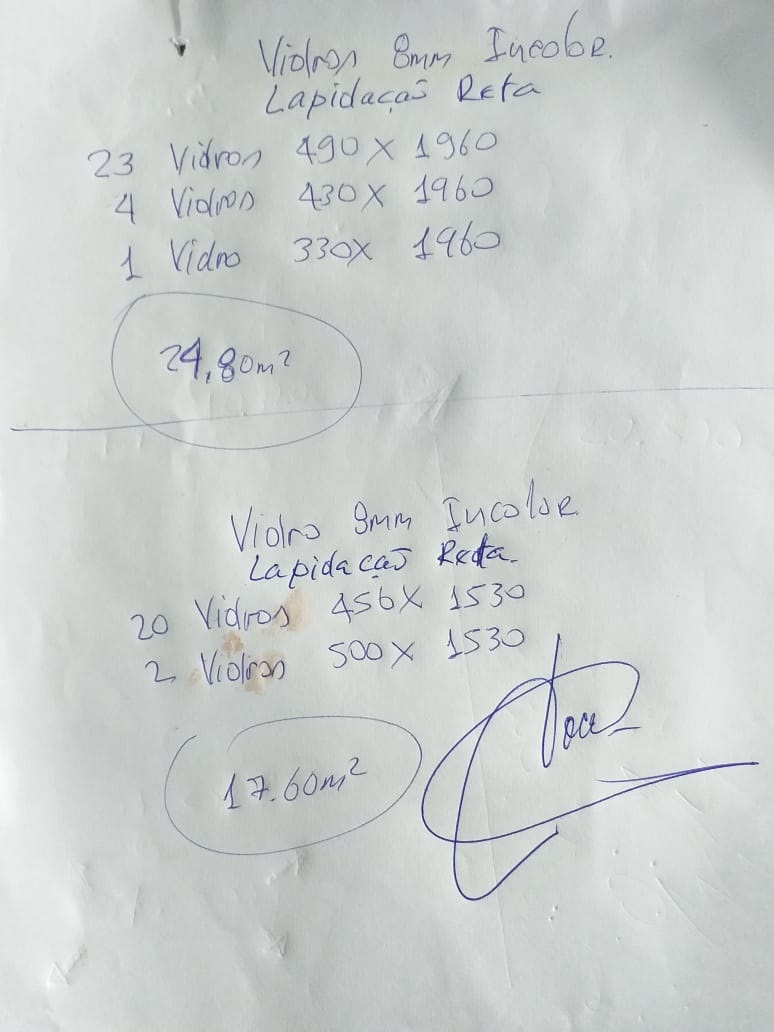 Vidros 8mm Incolor.
Lapidação Reta
23 Vidros 490 X 1960
4 Vidros 430 X 1960
1 Vidro 330X 1960
24,80m²
Vidro 8mm Incolor
Lapidação Reta.
20 Vidros 456X 1530
2 Vidros 500X 1530
17.60m²